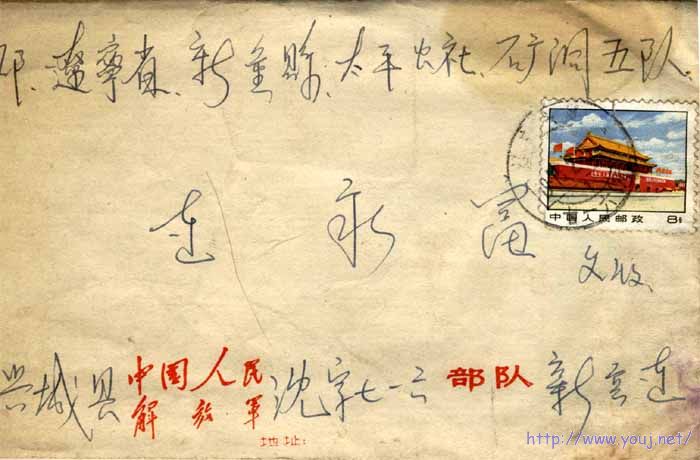 辽宁省、新金县、太平公社、矿洞五队
中国人民邮政 8分
连永富
文收
兴城县 中国人民解放军 沈字七一 部队 新 连
地址:
http://www.youj.net/